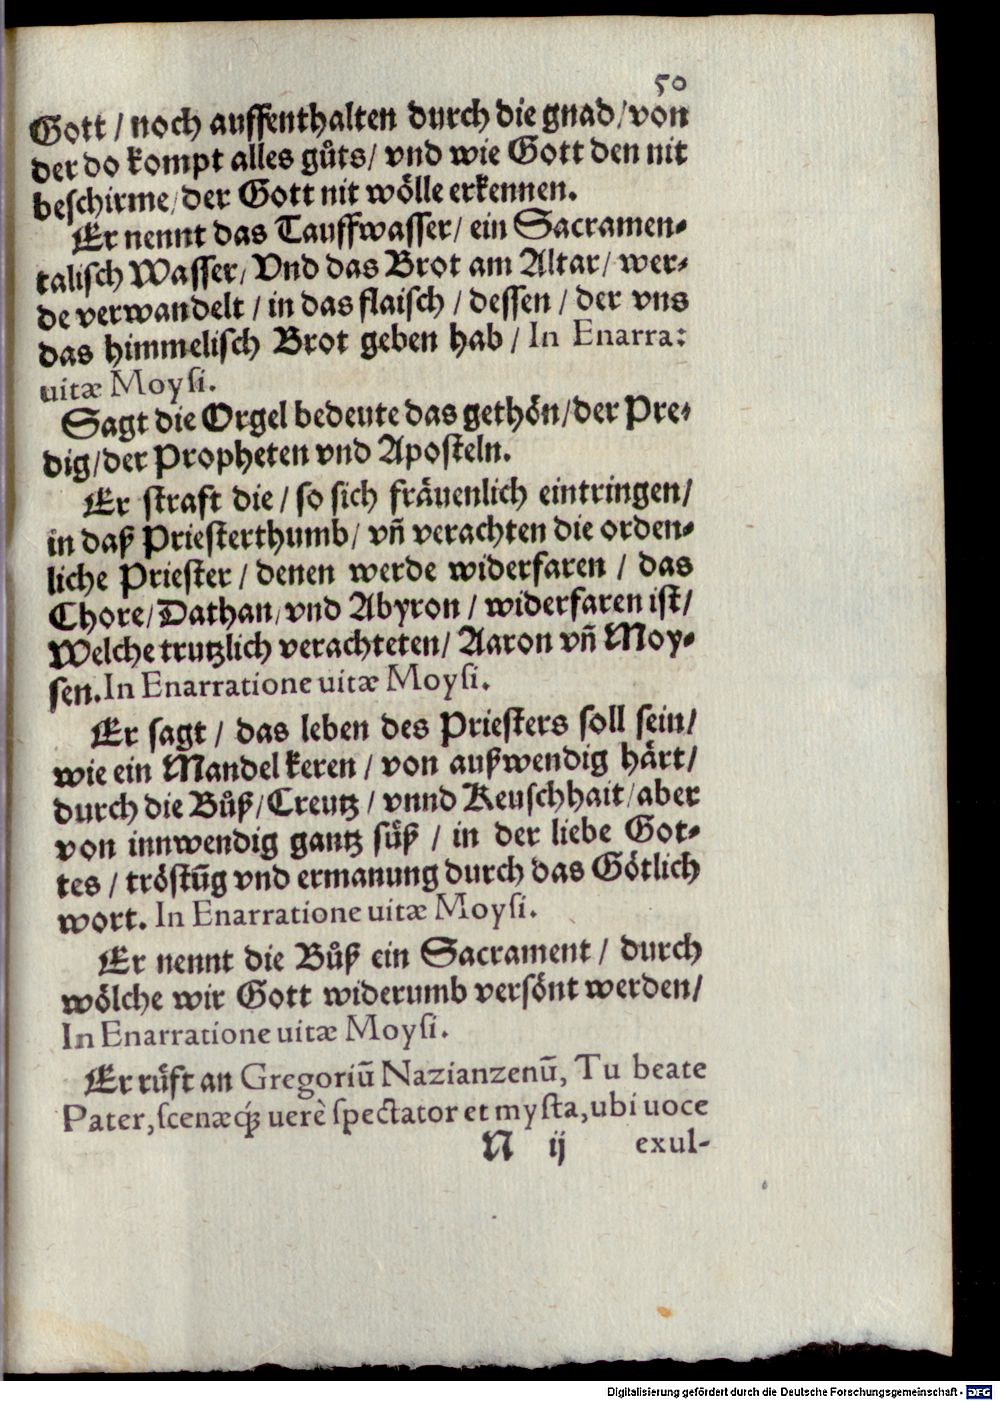 50
Gott / noch auffenthalten durch die gnad / von
der do kompt alles gůts / vnd wie Gott den nit
beschirme / der Gott nit wölle erkennen.
Er nennt das Tauffwasser / ein Sacramen-
talisch Wasser / Vnd das Brot am Altar / wer-
de verwandelt / in das flaisch / dessen / der vns
das himmelisch Brot geben hab / In Enarra:
uitæ Moysi.
Sagt die Orgel bedeute das gethön / der Pre-
dig / der Propheten vnd Aposteln.
Er straft die / so sich fräuenlich eintringen /
in daß Priesterthumb / vñ verachten die orden-
liche Priester / denen werde widerfaren / das
Chore / Dathan / vnd Abyron / widerfaren ist /
Welche trutzlich verachteten / Aaron vñ Moy-
sen. In Enarratione uitæ Moysi.
Er sagt / das leben des Priesters soll sein /
wie ein Mandel keren / von außwendig härt /
durch die Bůß / Creutz / vnnd Keuschhait / aber
von innwendig gantz süß / in der liebe Got-
tes / tröstūg vnd ermanung durch das Götlich
wort. In Enarratione uitæ Moysi.
Er nennt die Bůß ein Sacrament / durch
wölche wir Gott widerumb versönt werden /
In Enarratione uitæ Moysi.
Er růft an Gregoriū Nazianzenū, Tu beate
Pater, scenæq́; uerè spectator et mysta, ubi uoce
N ij exul-
Digitalisierung gefördert durch die Deutsche Forschungsgemeinschaft - DFG